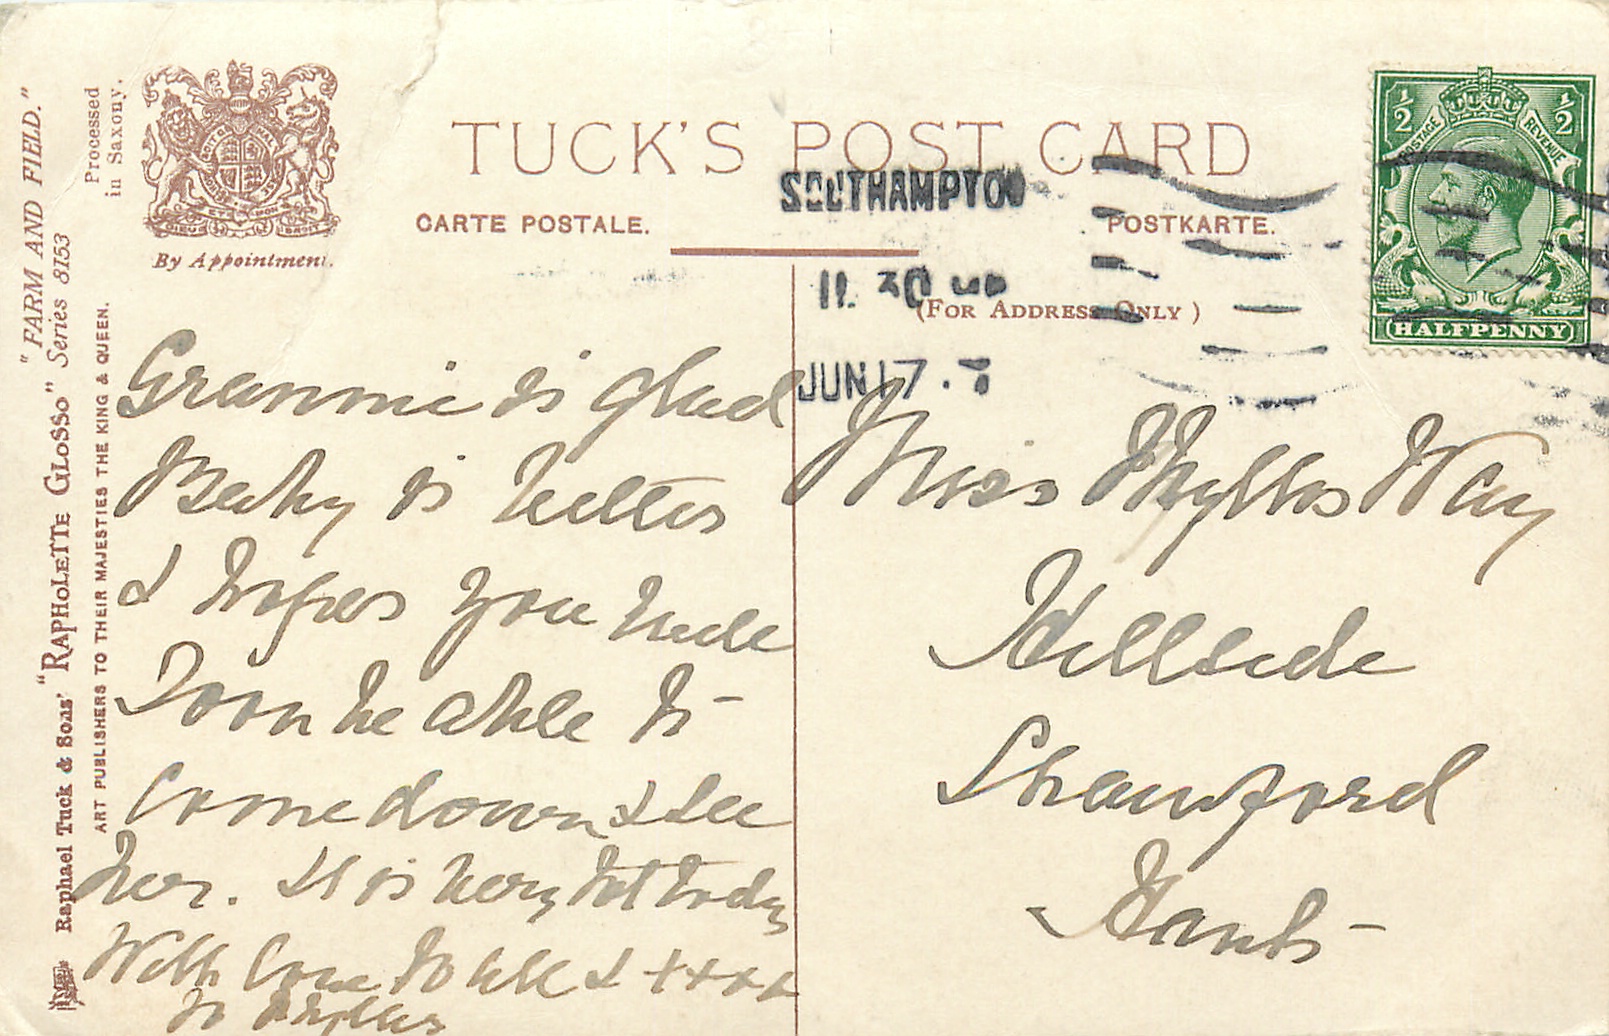 "FARM AND FIELD."
Raphael Tuck & Sons' "RAPHOLETTE GLOSSO" Series 8153
ART PUBLISHERS TO THEIR MAJESTIES THE KING & QUEEN.
Processed
in Saxony.
By Appointment.
TUCK'S POST CARD
CARTE POSTALE.
POSTKARTE.
(FOR ADDRESS ONLY)
SOUTHAMPTON
11. 30
JUN 17
POSTAGE
REVENUE
1/2
1/2
HALFPENNY
Grannie is glad
Baby is better
& hopes you will
Soon be able to
Come down & see
her. It is very hot today
With love to all & ++++
to Phyllis
Miss Phyllis Way
Hillside
Shawford
Hants